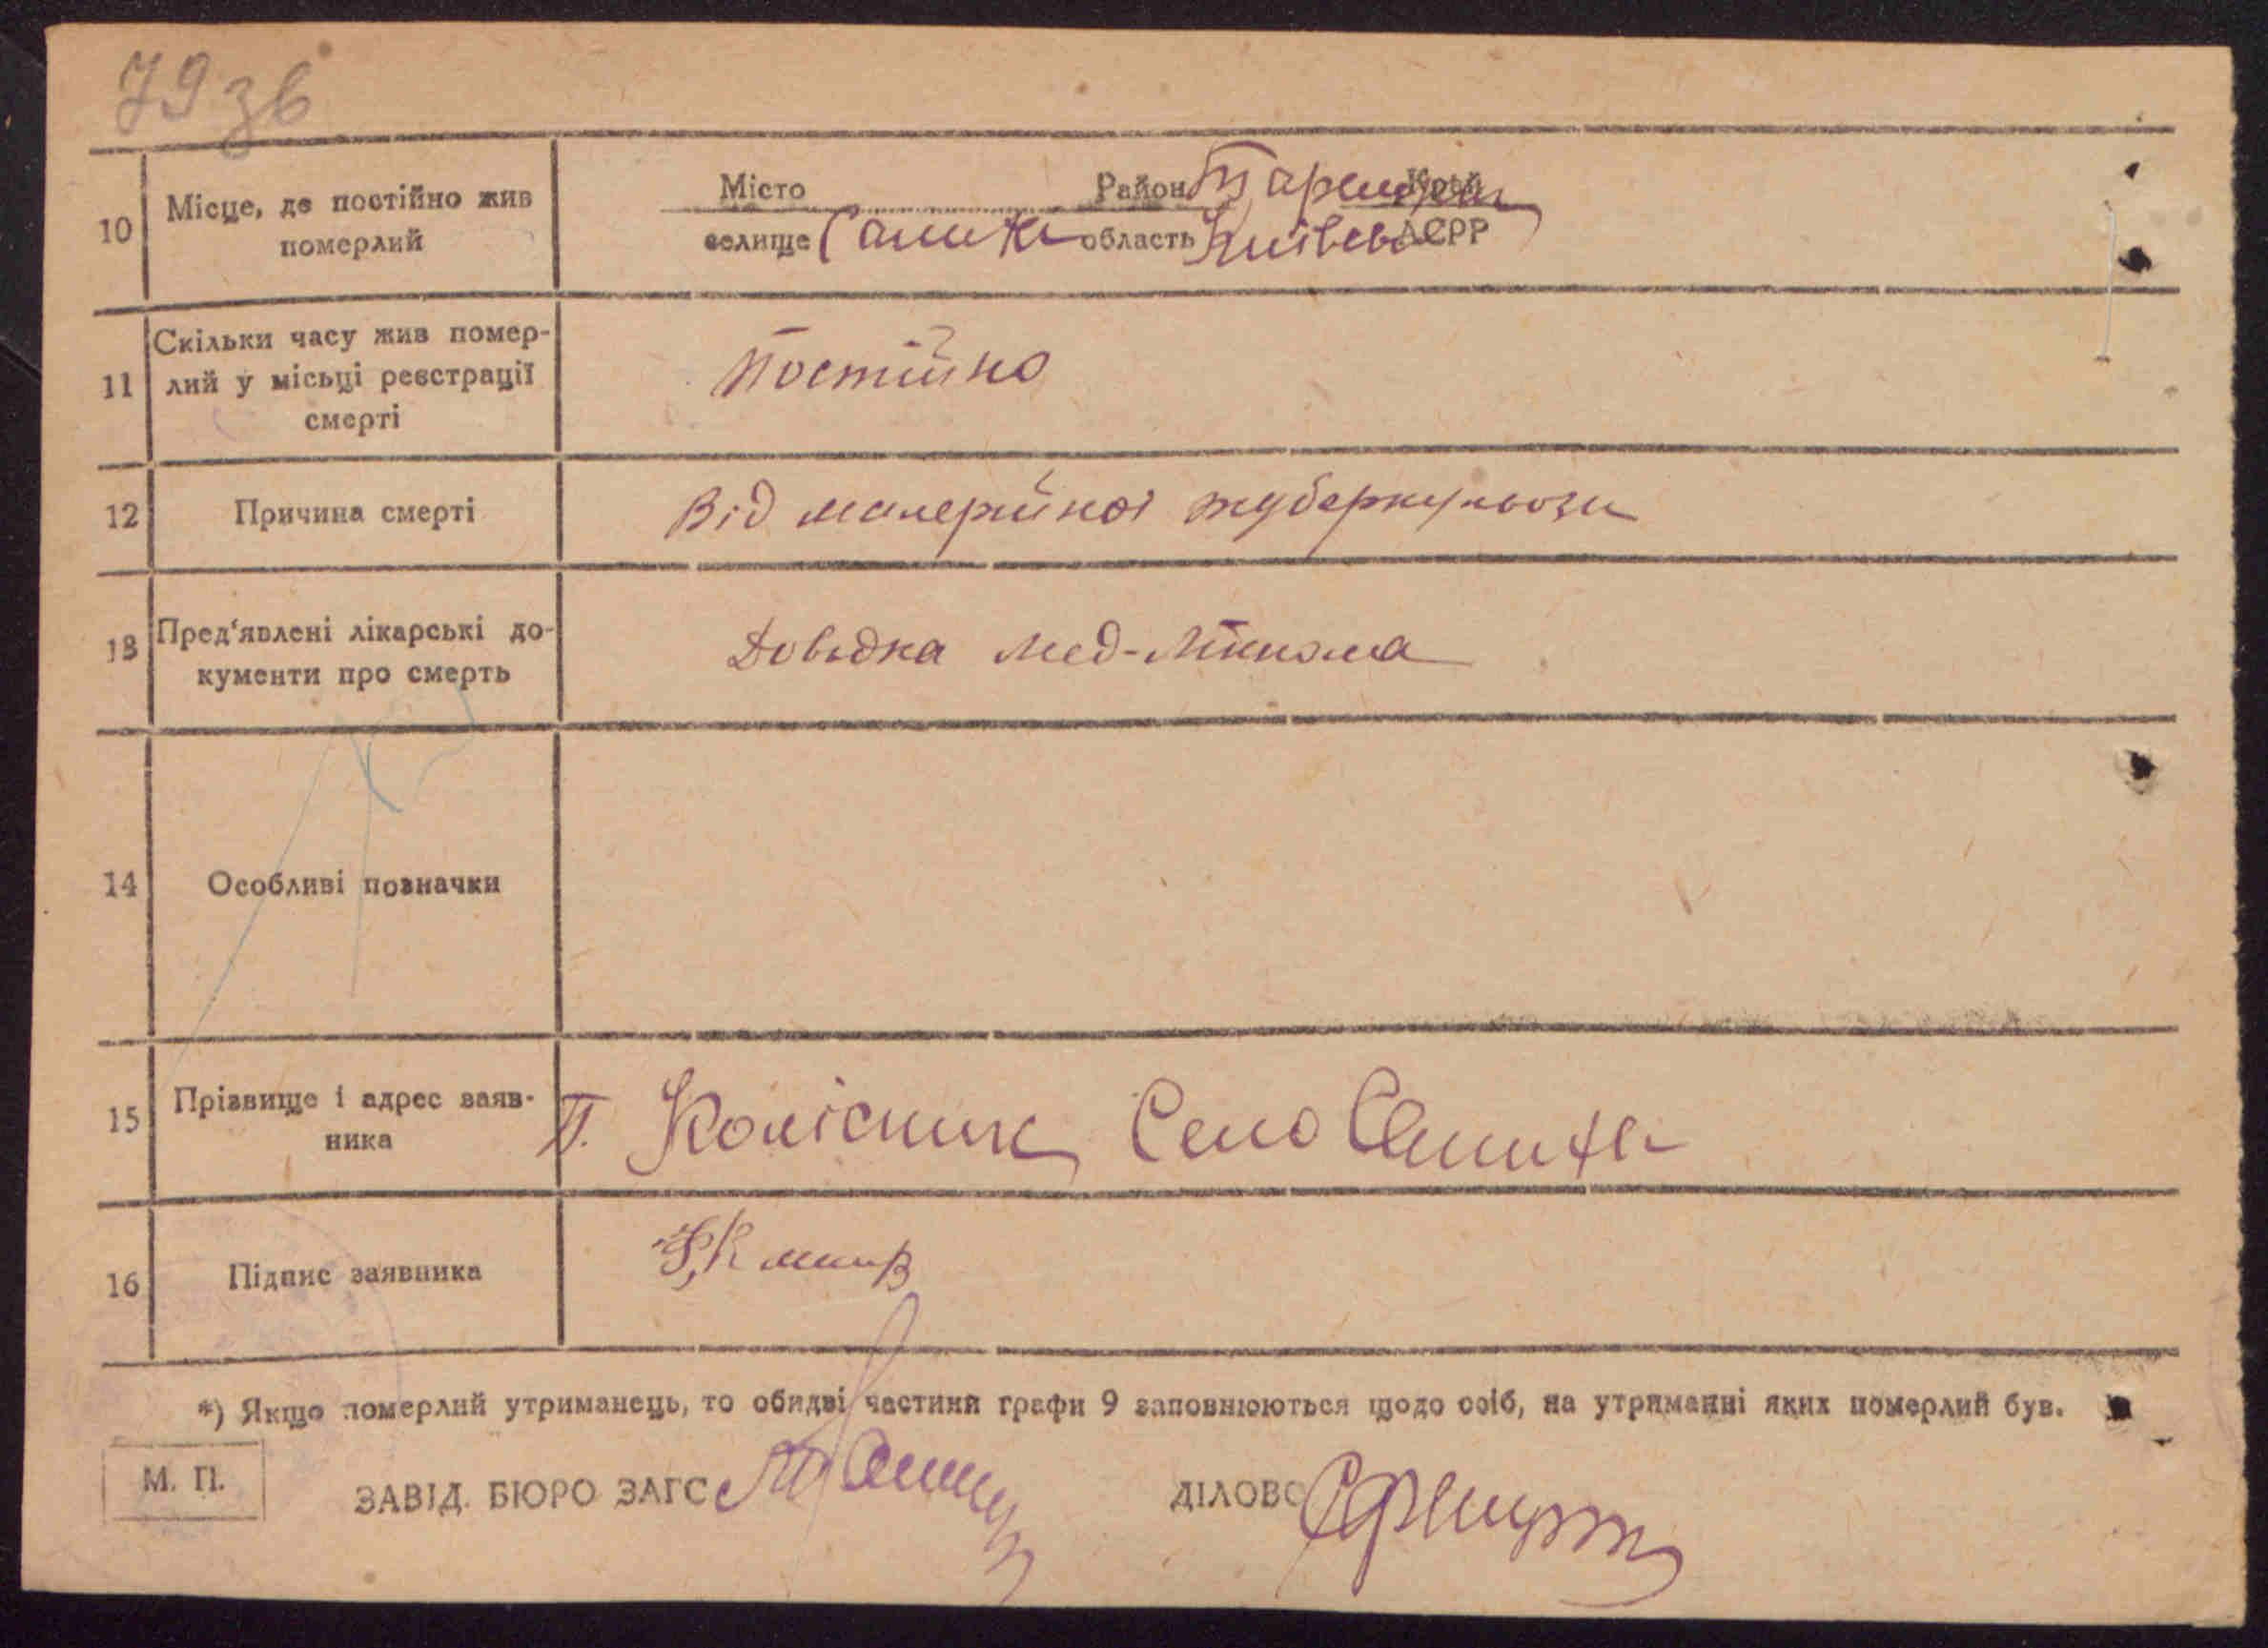 79 зв
10 Місце, де постійно жив померлий
Місто Район Край
селище область Київськ АСРР
11 Скільки часу жив помер-
лий у місьці реєстрації
смерті
Постійно
12 Причина смерті Від малерийної туберкульози
13 Пред'явлені лікарські до-
кументи про смерть
Довідка мед-
14 Особливі позначки
15 Прізвище і адрес заяв-
ника
П. Колісник Село
16 Підпис заявника
*) Якщо померлий утриманець, то обидві частини графи 9 заповнюються щодо осіб, на утриманні яких померлий був.
М. П.
ЗАВІД. БЮРО ЗАГС ДІЛОВО